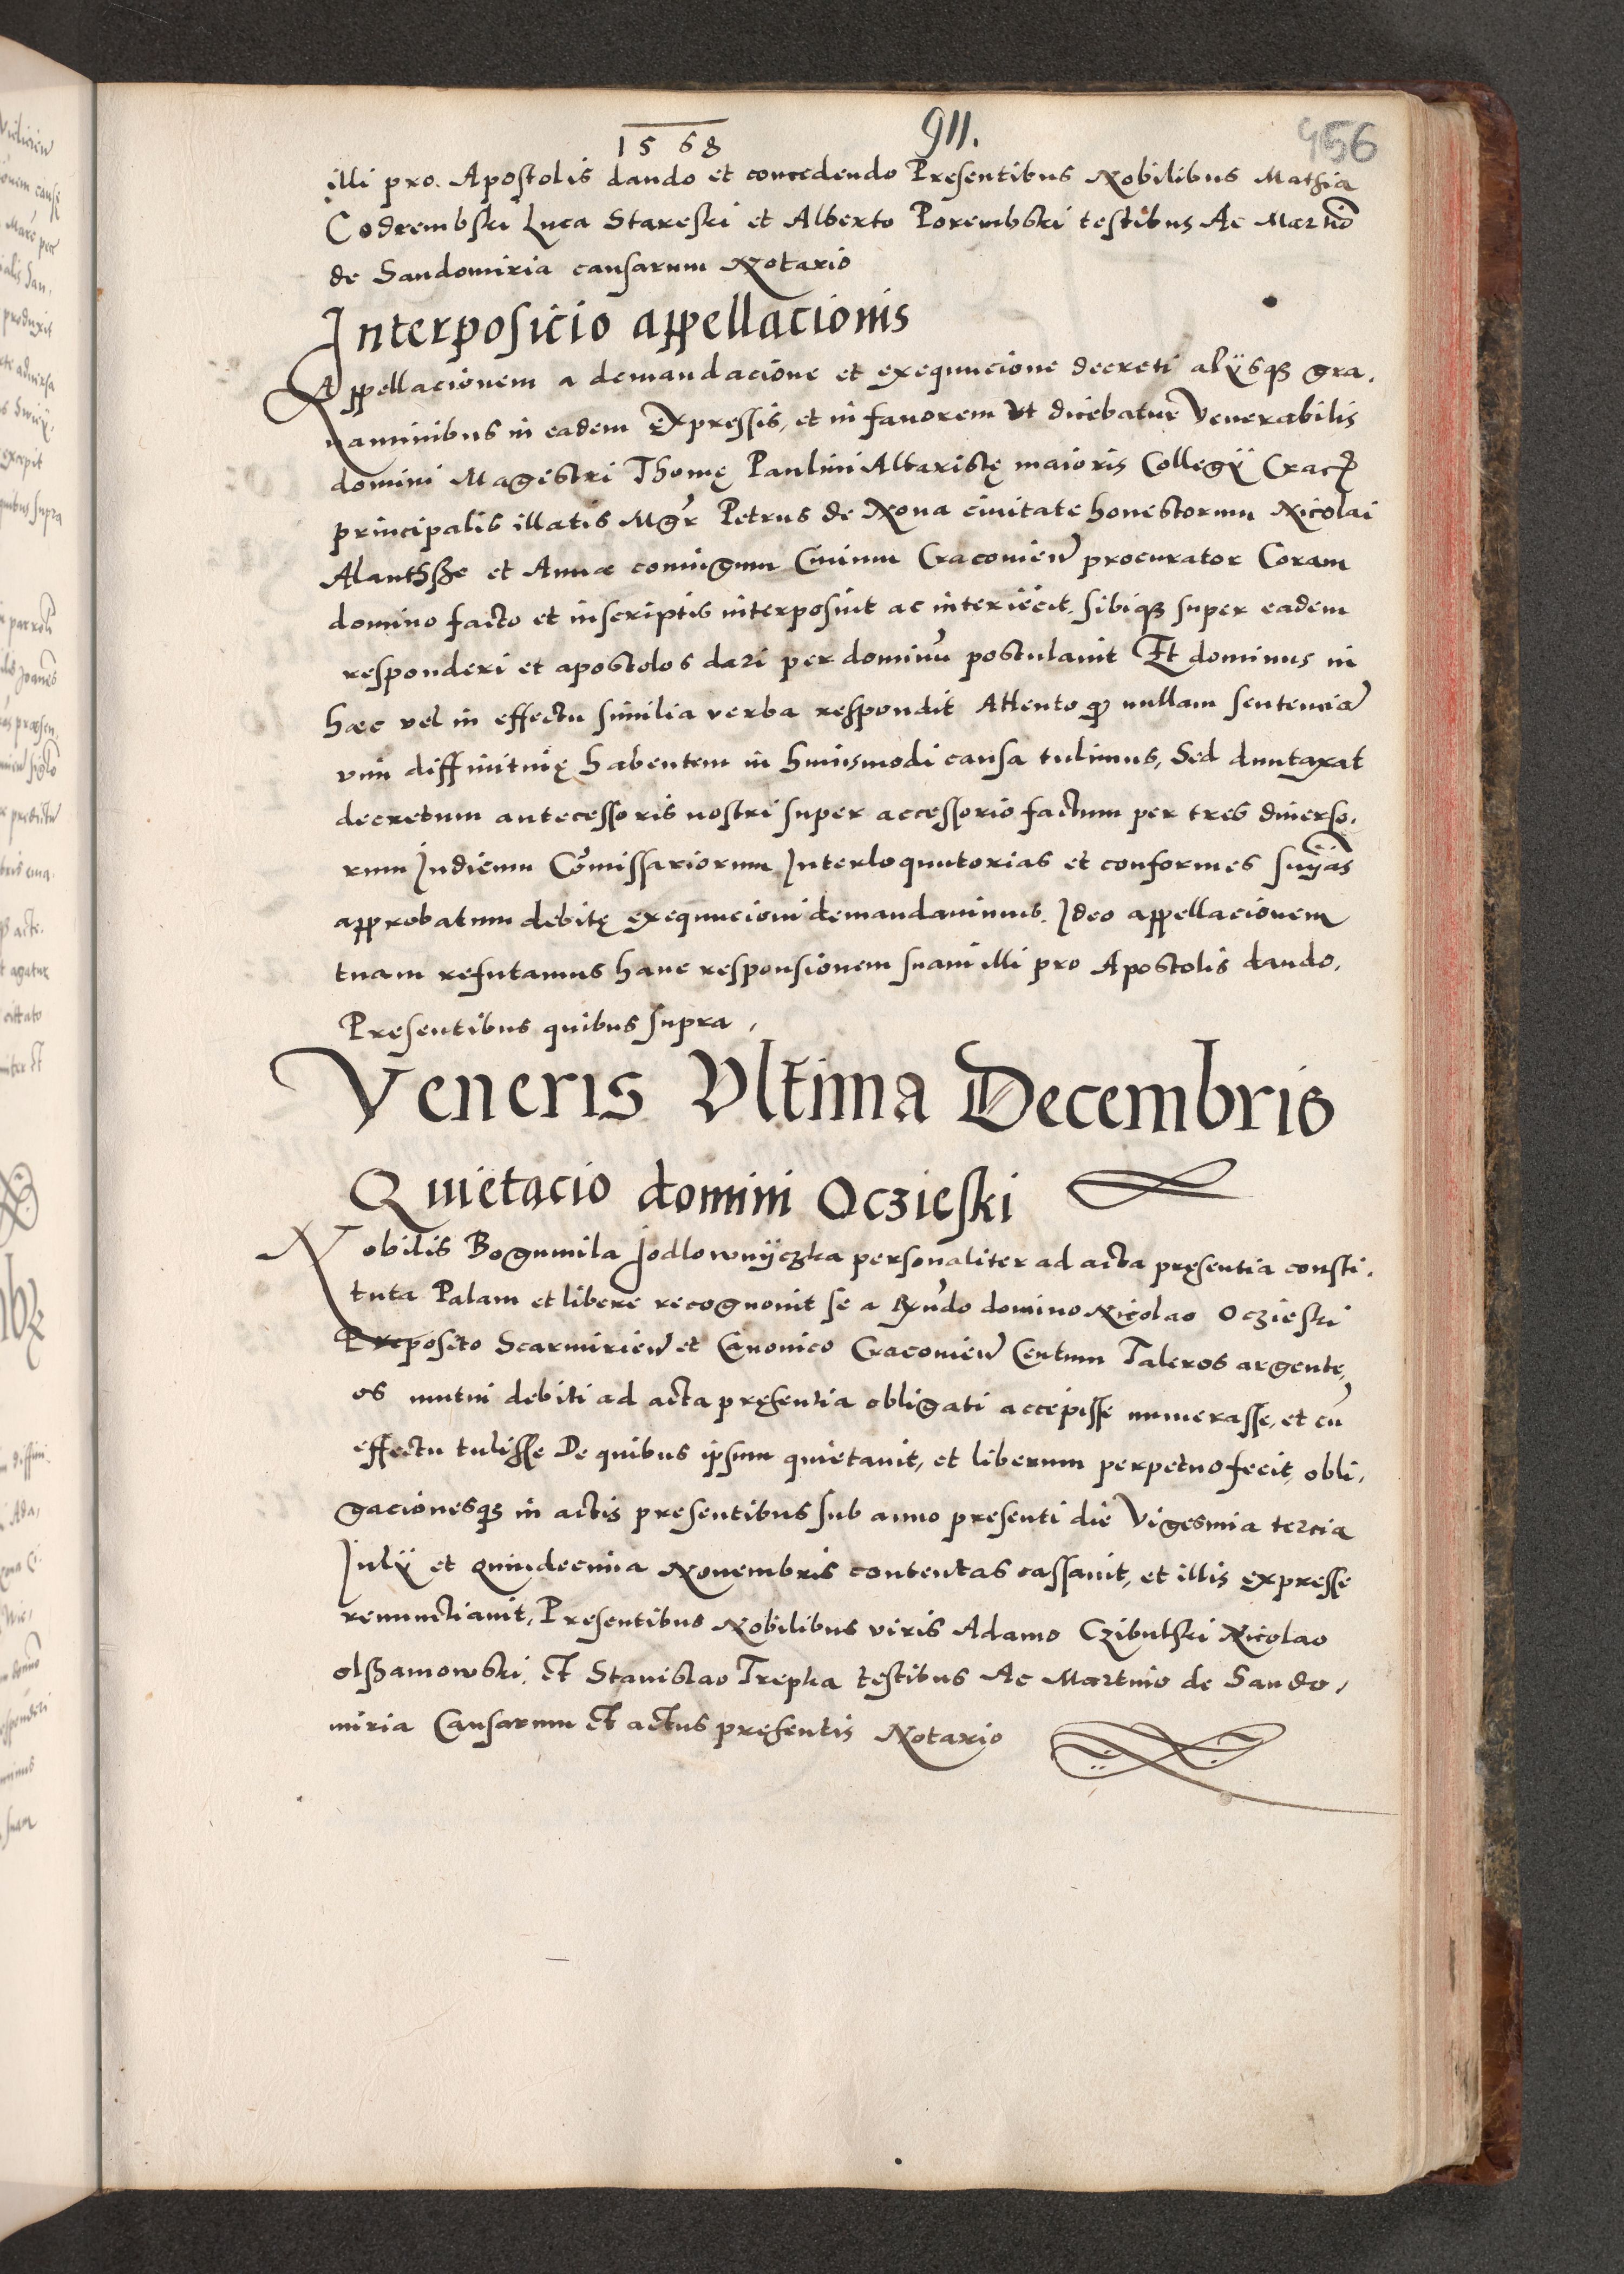 1568 911. 456
illi pro. Apostolis dando et concedendo Presentibus Nobilibus Mathia
Codrembski Luca Stareski et Alberto Porembski testibus Ac Martino
de Sandomiria causarum Notario
Interposicio appellacionis
Appellacionem a demandacione et exequucione decreti alÿsqꝫ gra,
uaminibus in eadem expressis, et in fauorem vt dicebatur Venerabilis
domini Magistri Thomę Paulini Altaristę maioris Collegÿ Crac̃
principalis illatis Mgr̃ Petrus de Noua ciuitate honestorum Nicolai
Alanthsze et Annæ coniugum Ciuium Cracouien̄ procurator Coram
domino facto et inscriptis interposuit ac interiecit, sibiqꝫ super eadem
responderi et apostolos dari per dominū postulauit Et dominus in
hæc vel in effectu similia verba respondit Attento ꝙ nullam sentencia᷉
vim diffinitiuę habentem in huiusmodi causa tulimus, Sed duntaxat
decretum antecessoris nostri super accessorio factum per tres diuerso,
rum Iudicum Cōmissariorum Interloquutorias et conformes sn̄ias
approbatum debitę exequucioni demandauimus. Ideo appellacionem
tuam refutamus hanc responsionem suam illi pro Apostolis dando,
Presentibus quibus supra,
Veneris Vltima Decembris
Quietacio domini Oczieski
Nobilis Bogumila Jodlownÿczka personaliter ad acta pręsentia consti,
tuta Palam et libere recognouit se a Rn̄do domino Nicolao Oczieski
Preposito Scarmirien̄ et Canonico Cracouien̄ Centum Taleros argente,
os mutui debiti ad acta pręsentia obligati accepisse numerasse, et cū
effectu tulisse De quibus ipsum quietauit, et liberum perpetuo fecit, obli,
gacionesqꝫ in actis presentibus sub anno presenti die Vigesima tercia
Julÿ et quindecima Nouembris contentas cassauit, et illis expresse
renunctiauit, Presentibus Nobilibus viris Adamo Czibulski Nicolao
olszamowski, et Stanislao Trepka testibus Ac Martino de Sando,
miria Causarum et actus pręsentis Notario